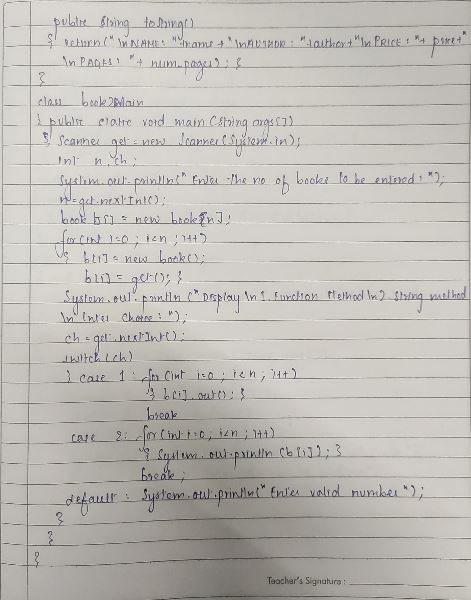 public String toString()
{ return("\nNAME: "+name+"\nAUTHOR: "+author+"\nPRICE: "+ price+"
\n PAGES: "+ num_pages); }
}
class book2Main
{ public static void main (String args[])
{ Scanner get = new Scanner(System.in);
int n, ch;
System.out.println(" Enter the no of books to be entered : ");
n=get.nextInt();
book b[] = new book[n];
for(int i=0 ; i<n ; i++)
{ b[i] = new book();
b[i] = get(); }
System.out.println ("Display \n 1. Function Method \n 2. String method
\n Enter Choice : ");
ch = get.nextInt();
switch (ch)
{ case 1 : for (int i=0 ; i<n ; i++)
{ b[i].out(); }
break
case 2: for(int i=0 ; i<n ; i++)
{ System.out.println (b[i]); }
break ;
default : System.out.println(" Enter valid number ");
}
}
}
Teacher's Signature :